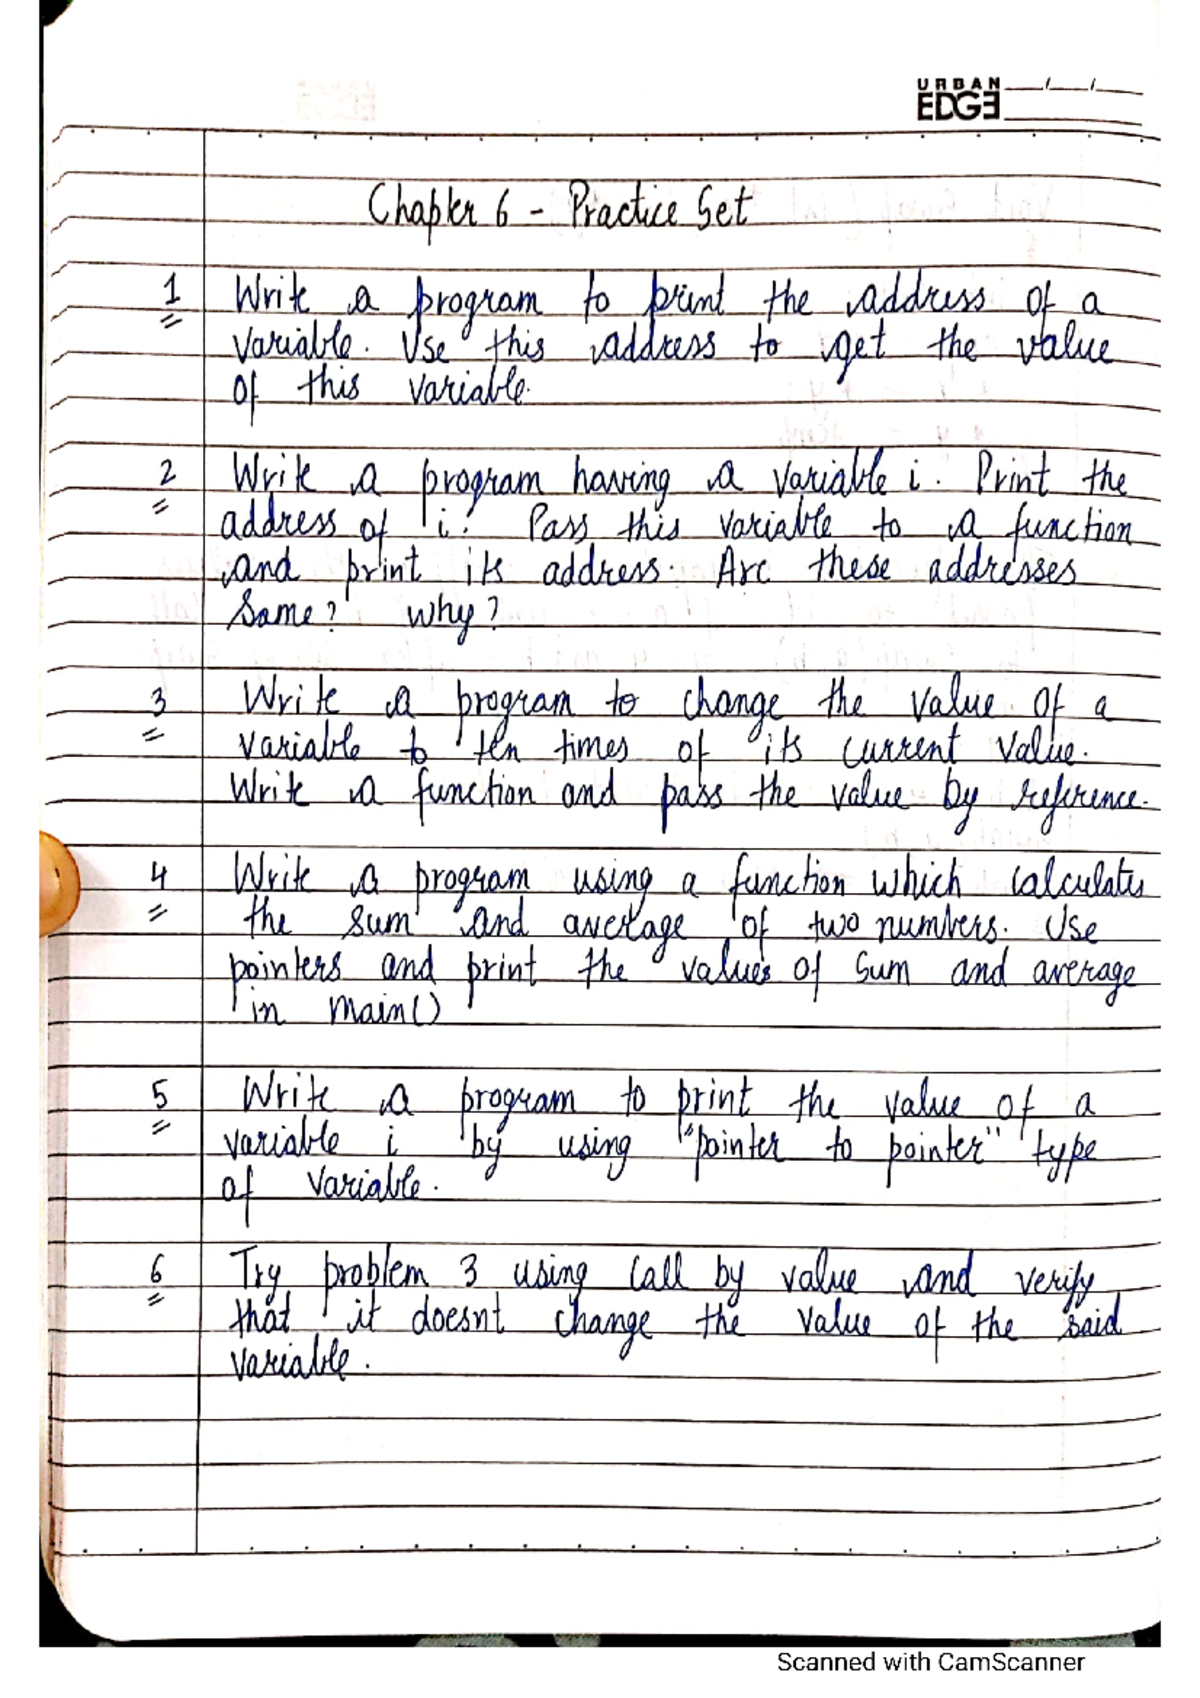 URBAN
EDGE
Chapter 6 - Practice Set
1 Write a program to print the address of a
variable. Use this address to get the value
of this variable.
2 Write a program having a variable i. Print the
address of i. Pass this variable to a function
and print its address. Are these addresses
Same? Why?
3 Write a program to change the value of a
variable to ten times of its current value.
Write a function and pass the value by reference.
4 Write a program using a function which calculates
the sum and average of two numbers. Use
pointers and print the values of sum and average
in main()
5 Write a program to print the value of a
variable i by using "pointer to pointer" type
of variable.
6 Try problem 3 using call by value and verify
that it doesnt change the value of the said
variable.
Scanned with CamScanner